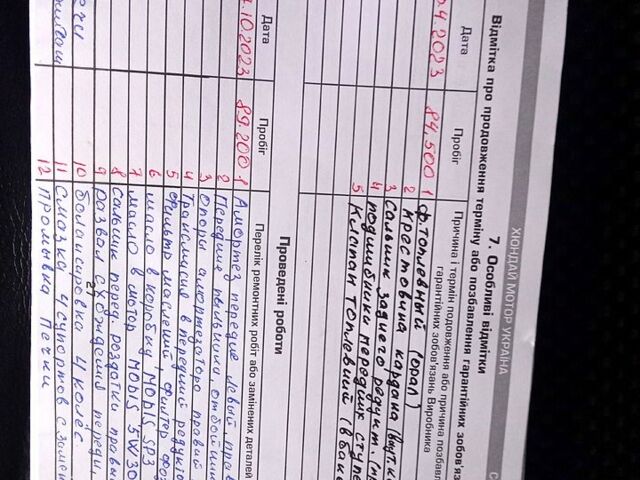 ХЮНДАЙ МОТОР УКРАЇНА
7. Особливі відмітки
Відмітка про продовження терміну або позбавлення гарантійних зобов'яз
Дата
Пробіг
Причина і термін подовження або причина позбавл
гарантійних зобов'язань Виробника
.4.2023 84,500 1 ф. топлевный (орал)
2 крестовина кардана (внут. к
3 Сальник заднего редукт. (
4 подшибники передних ступе
5 Клапан топлевий (в бак
Проведені роботи
Дата
Пробіг
Перелік ремонтних робіт або замінених деталей
.10.2023 89.200 1 Амортез передние левый прав
2 Передние пыльники, отбойник
3 Опоры амортезатора правий
4 Трансмисия в передний редук
5 Фильтр масленый, фильтр
6 масло в коробку MOBIS SP3
7 масло в мотор MOBIS 5W30
8 Сальник перед. роздатки правы
9 Розвал схождения переди,
10 балансировка 4 колёс
27
11 Смазка 4 супортов с замен
12 Промывка Печки